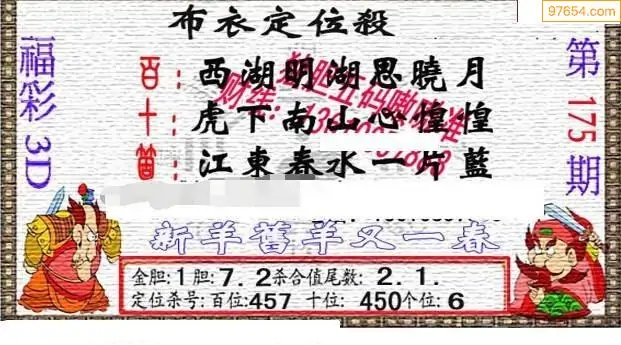 97654.com
布衣定位殺
福彩3D
第175期
百：西湖明湖思曉月
十：虎下南山心惶惶
個：江東春水一片藍
新羊舊羊又一春
金胆:1胆:7.2杀合值尾数:2.1.
定位杀号:百位:457 十位:450个位:6